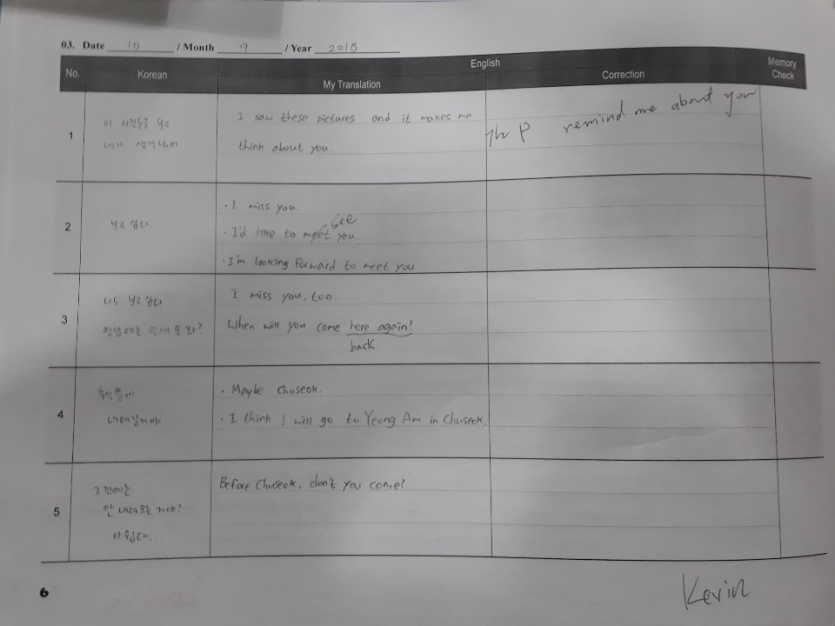 03. Date 10 / Month 9 / Year 2018
English
No. Korean My Translation Correction Memory Check
1
이 사진들을 보고
내가
I saw these pictures and it makes me
think about you.
The P remind me about you
2
보고 싶다
· I miss you
see
· I'd like to meet you.
· I'm looking forward to meet you
3
나도 보고 싶다
영암에는 언제 또 와?
I miss you, too.
When will you come here again?
back
4
추석쯤에
내려갈거야
· Maybe Chuseok.
· I think I will go to Yeong Am in Chuseok.
5
그 전에는
안 내려 올 거야?
아쉽다...
Before Chuseok, don't you come?
6
Kevin